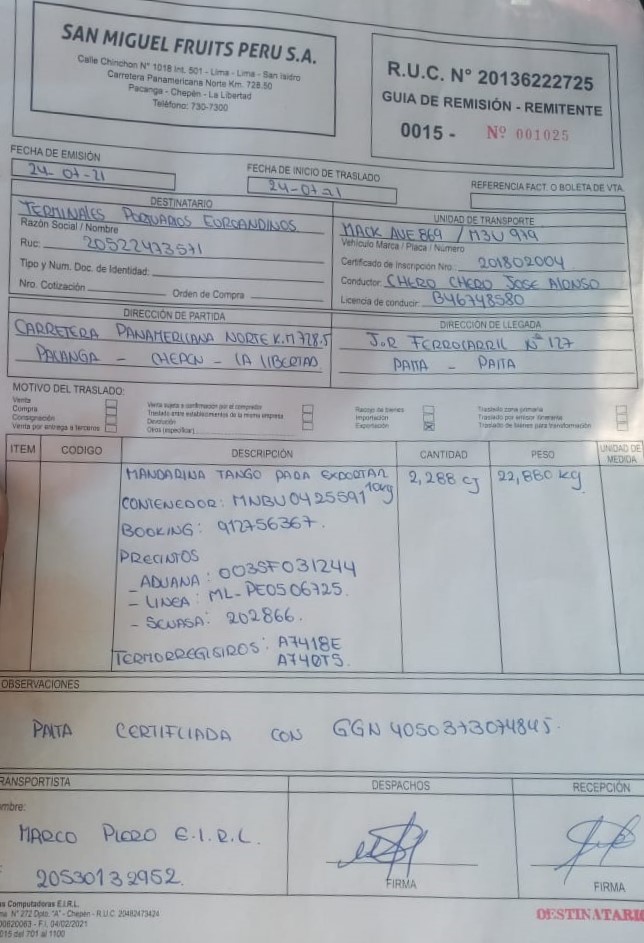 SAN MIGUEL FRUITS PERU S.A.
Calle Chinchon N° 1018 Int. 501 - Lima - Lima - San Isidro
Carretera Panamericana Norte Km. 728.50
Pacanga - Chepén - La Libertad
Teléfono: 730-7300
R.U.C. N° 20136222725
GUIA DE REMISIÓN - REMITENTE
0015 - Nº 001025
FECHA DE EMISIÓN
24-07-21
FECHA DE INICIO DE TRASLADO
24-07-21
REFERENCIA FACT. O BOLETA DE VTA.
DESTINATARIO
TERMINALES PORTUARIOS EUROANDINOS
Razón Social / Nombre
Ruc: 20522473571
Tipo y Num. Doc. de Identidad:
Nro. Cotización: Orden de Compra
UNIDAD DE TRANSPORTE
MACK AVE 869 / M3U 979
Vehículo Marca / Placa / Numero
Certificado de Inscripción Nro.: 201802004
Conductor: CHERO CHERO JOSE ALONSO
Licencia de conducir: B46748580
DIRECCIÓN DE PARTIDA
CARRETERA PANAMERICANA NORTE K.M 728.5
PACANGA - CHEPEN - LA LIBERTAD
DIRECCIÓN DE LLEGADA
J.R FERROCARRIL Nº 127
PAITA - PAITA
MOTIVO DEL TRASLADO:
Venta
Compra
Consignación
Venta por entrega a terceros
Venta sujeta a confirmación por el comprador
Traslado entre establecimientos de la misma empresa
Devolución
Otros (especificar)
Recojo de bienes
Importación
Exportación
Traslado zona primaria
Traslado por emisor itinerante
Traslado de bienes para transformación
ITEM CODIGO DESCRIPCIÓN CANTIDAD PESO UNIDAD DE MEDIDA
MANDARINA TANGO PARA EXPORTAR 10kg 2,288 cj 22,880 kg
CONTENEDOR: MNBU0425591
BOOKING: 912756367.
PRECINTOS
- ADUANA: 003SF031244
- LINEA: ML-PE0506725.
- SENASA: 202866.
TERMORREGISTROS: A7418E
A740TS.
OBSERVACIONES
PALTA CERTIFICADA CON GGN 4050373074845.
TRANSPORTISTA
DESPACHOS
RECEPCIÓN
MARCO PIERO E.I.R.L.
20530132952.
FIRMA
FIRMA
Computadoras E.I.R.L.
N° 272 Dpto. "A" - Chepén - R.U.C. 20482473424
F.I. 04/02/2021
015 del 701 al 1100
DESTINATARIO